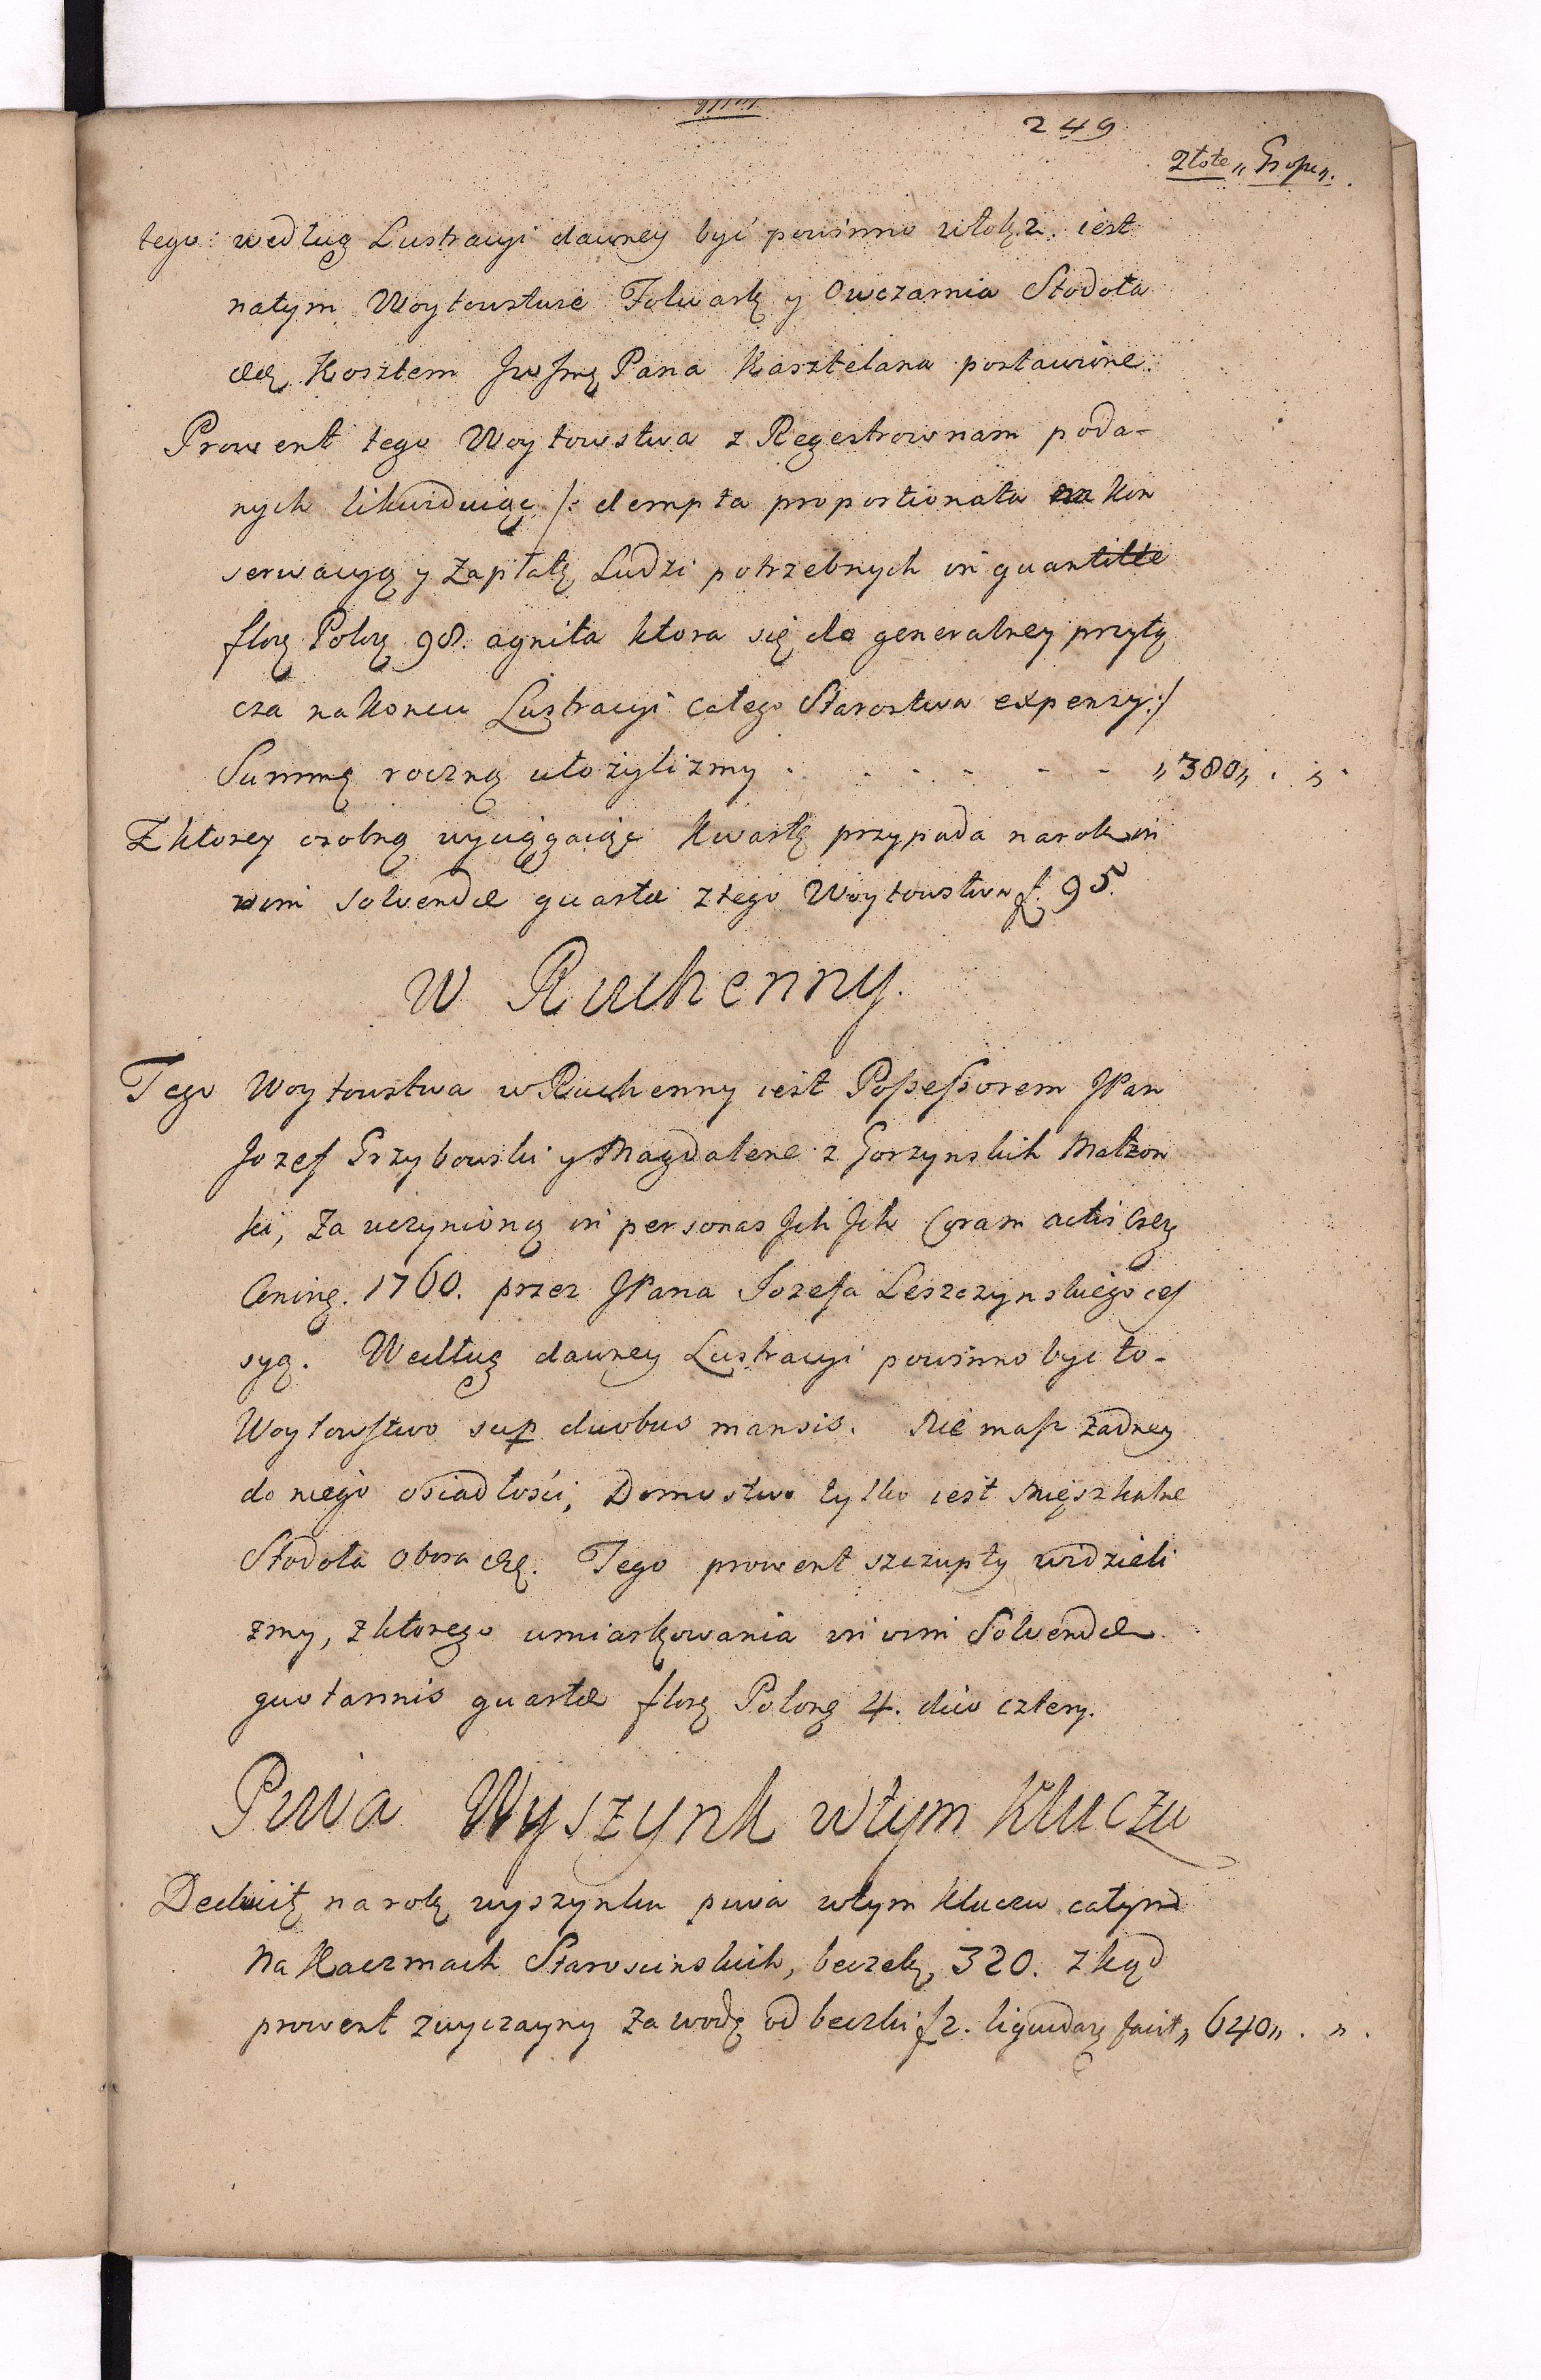 249
Złote „ Grosze „.
tego: według Lustracyi dawney być powinno włok. 2. iest
natym Woytowstwie Folwark y Owczarnia Stodoła
etc Kosztem JwJmę Pana Kasztelana postawione.
Prowent tego Woytowstwa z Regestrow nam poda-
nych likwiduiąc /: dempta proportionata na kon
serwacyą y Zapłatę Ludzi potrzebnych in quantitte
florę Polorę 98. agnita ktora się do generalney przyłą
cza nakoncu Lustracyi całego Starostwa expensy :/
Summę roczną ułożylizmy . . . - - - „380„ . „ .
Z ktorey osobną wyciągaiąc kwartę przypada narok in
vim solvendæ quartæ ztego Woytowstwa f. 95.
W Ruchenny.
Tego Woytowstwa w Ruchenny iest Possessorem JPan
Jozef Grzybowski y Magdalene z Gorzynskich Małżon
ki, Za uczynioną in personas Ich Ich Coram actis
1760. przez JPana Jozefa Leszczynskiego ces
syą. Według dawney Lustracyi powinno byc to-
Woytowstwo sup duobus mansis. Nie masz żadney
do niego osiadłości, Domostwo tylko iest Mięszkalne
Stodoła obora etc. Tego prowent szczupły widzieli
zmy, z ktorego umiarkowania in vim Solvendæ
quotannis quartæ florę Polonę 4. dico cztery.
Piwa Wyszynk wtym Kluczu
Deducitę narok wyszynku piwa wtym kluczu całym
Na Karczmach Staroscinskich, beczek, 320. zkąd
prowent zwyczayny za wodę od beczki f 2. liquidarę facit „ 640„ . „ .